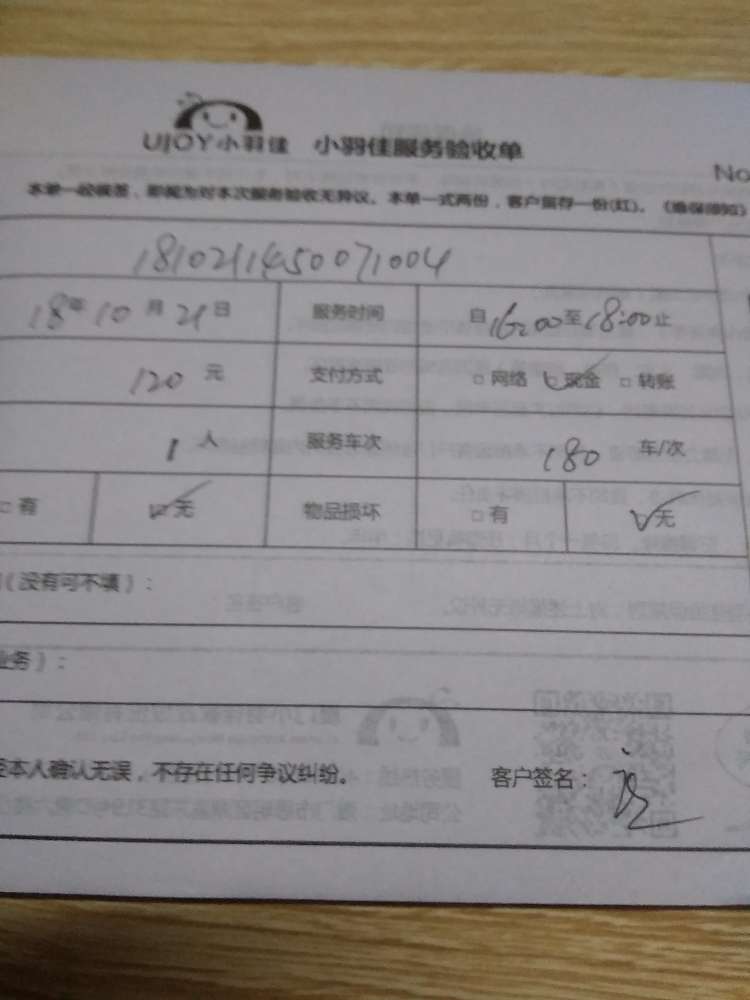 UJOY小羽佳 小羽佳服务验收单
No
本单一经填签，即视为对本次服务验收无异议。本单一式两份，客户留存一份(红)。
1810211450071004
18年10月21日 服务时间 自16:00至18:00止
120元 支付方式 □网络 ☑现金 □转账
1人 服务车次 180车/次
□有 ☑无 物品损坏 □有 ☑无
(没有可不填)：
业务)：
本人确认无误，不存在任何争议纠纷。 客户签名：